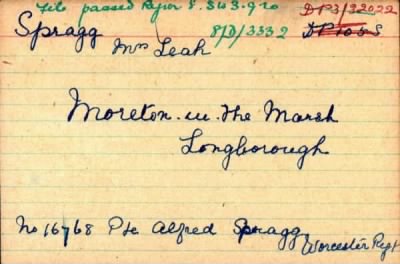 File passed Rejor 8.3H3.9.20
Spragg 8/D/3332 DP3/32022
Mrs Leah DP1055
Moreton-in-the Marsh
Longborough
No 16768 Pte Alfred Spragg
Worcester Regt